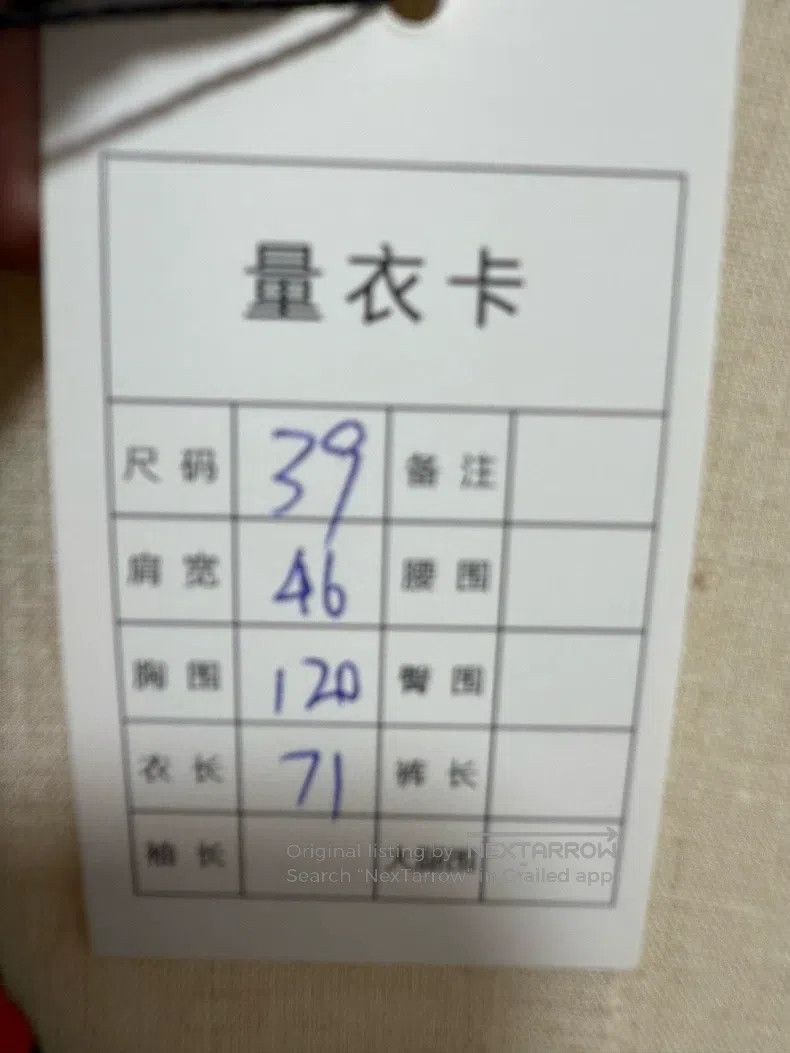 量衣卡
尺码 39 备注
肩宽 46 腰围
胸围 120 臀围
衣长 71 裤长
袖长
Original listing by NEXTARROW
Search "NexTarrow" in Grailed app